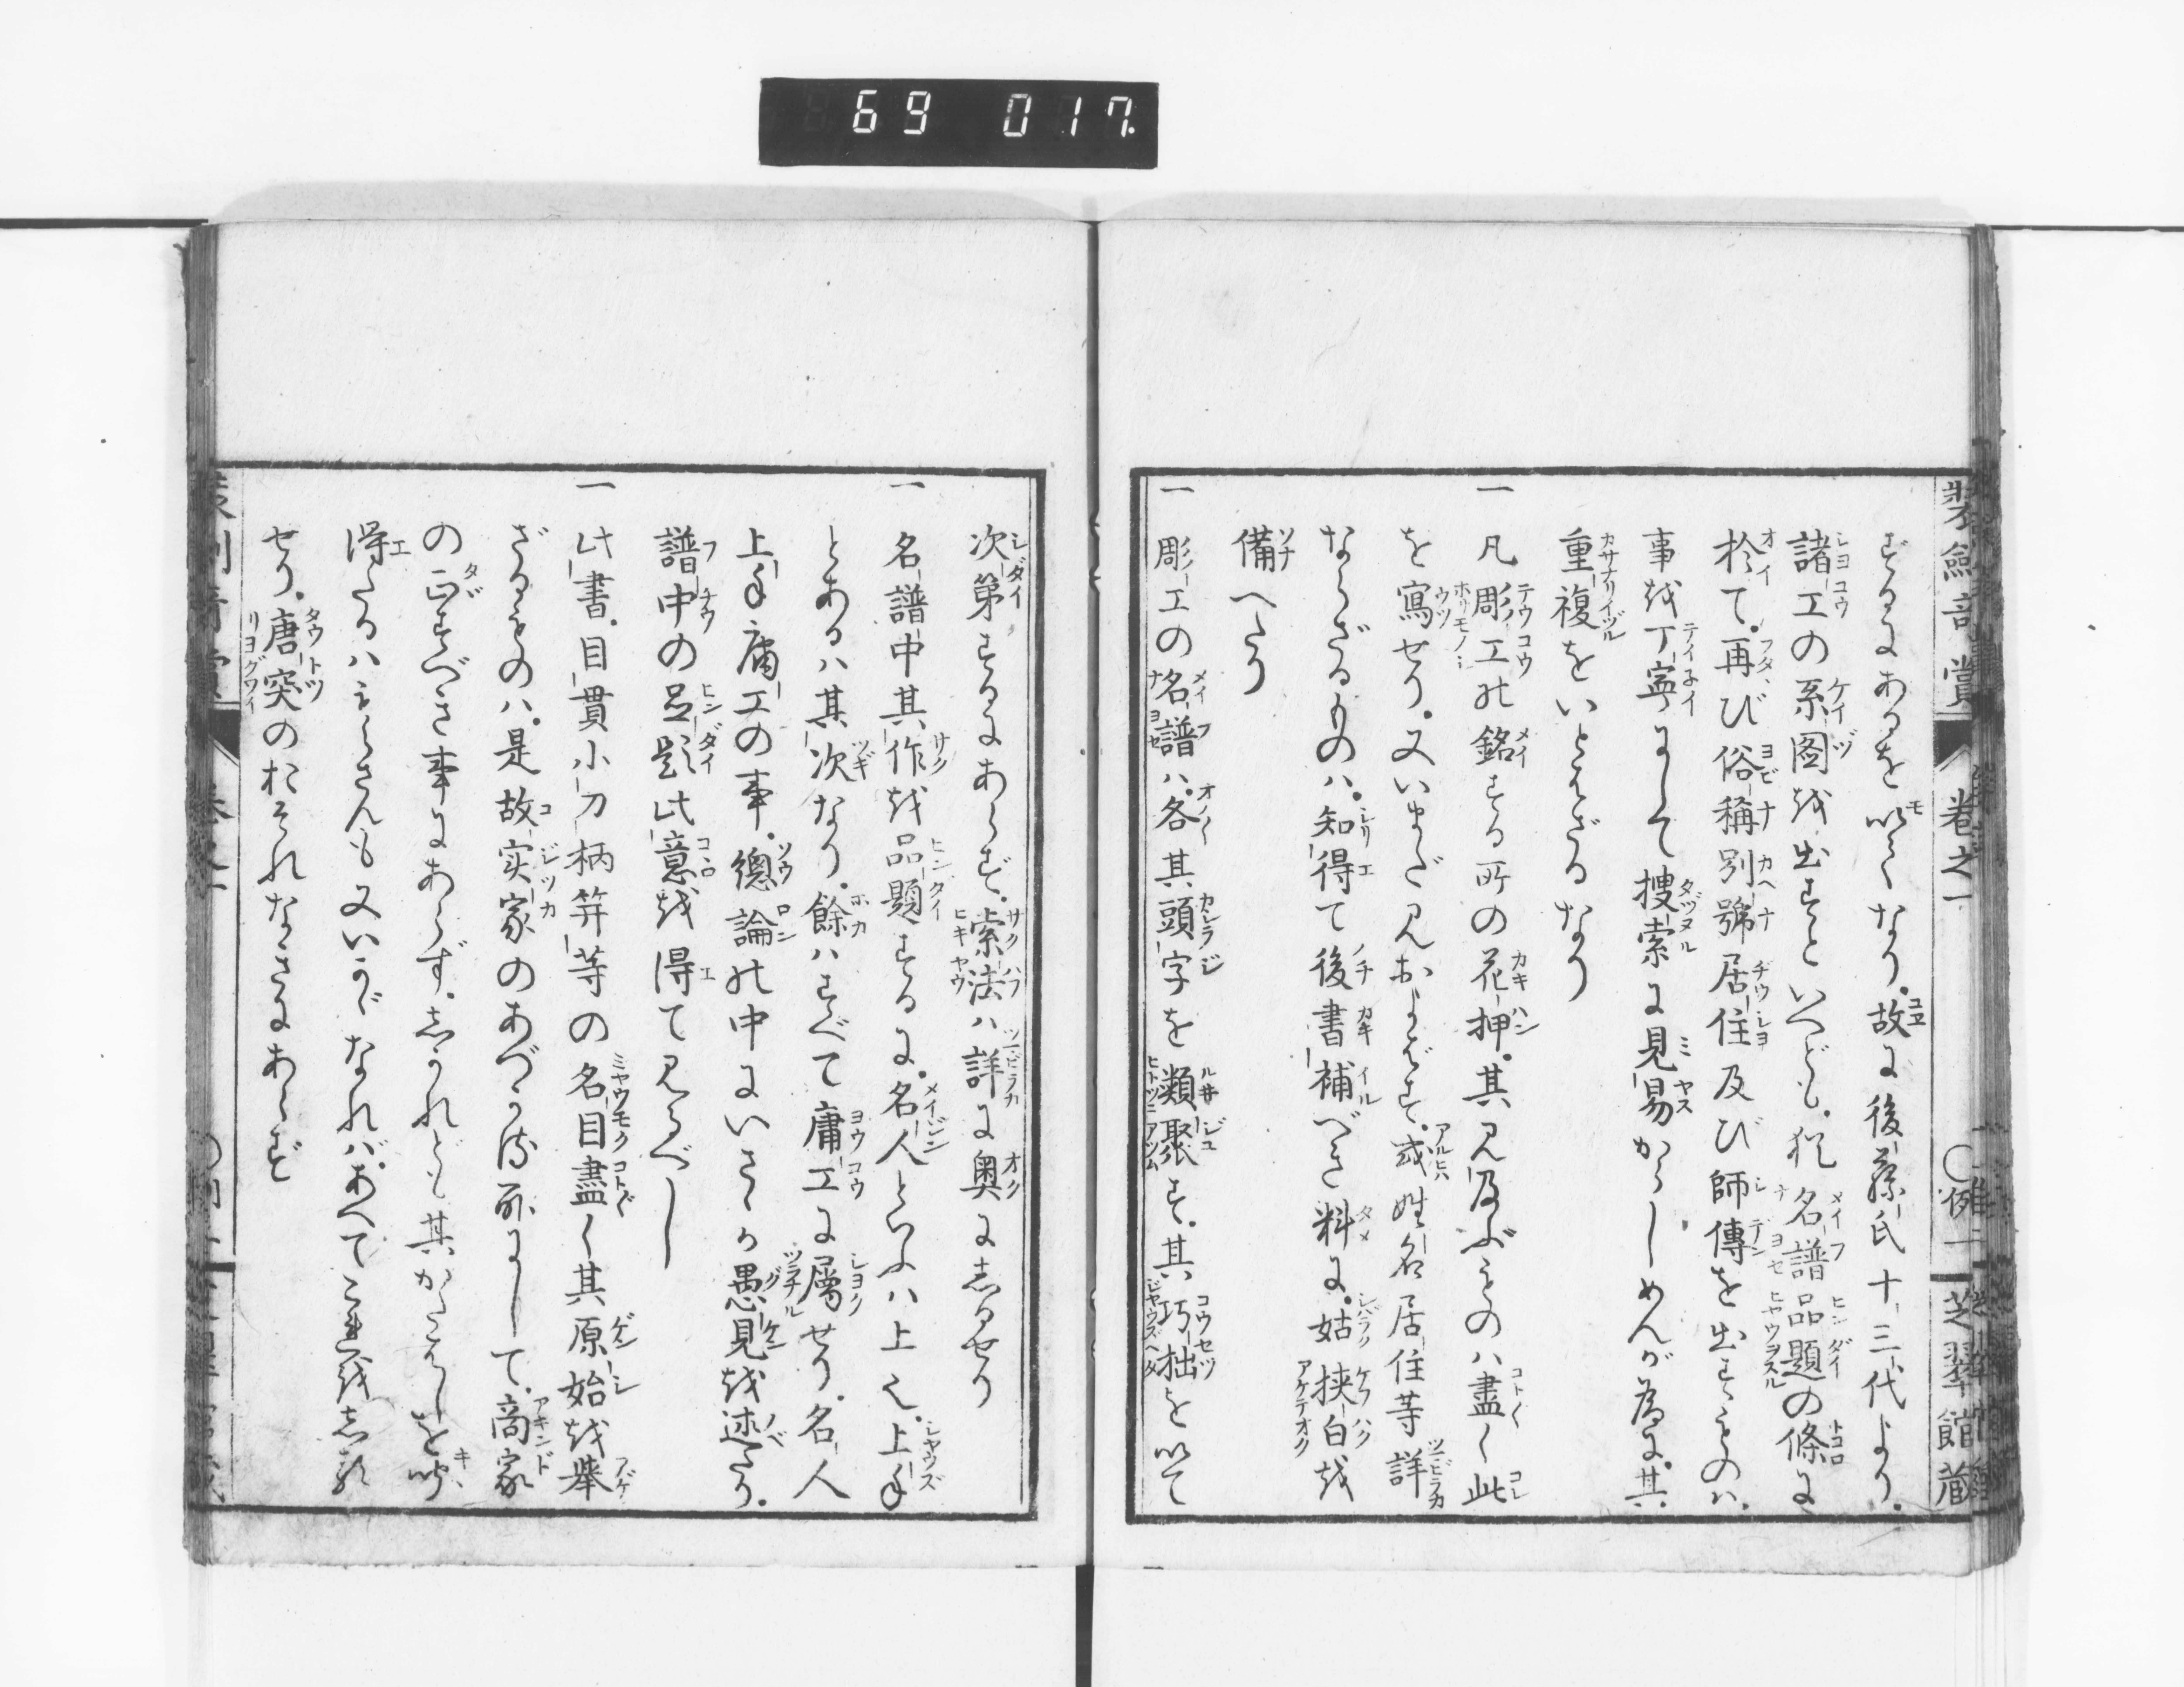 69 017
装劍竒賞 巻之一 ○例二 芝翠館蔵
ざるにあるを以てなり。故に後藤氏十三代より。
諸工の系図を出すといへども。猶名譜品題の條に
於て。再び俗稱別號居住及び師傳を出すものハ。
事を丁寧にして捜索に見易からしめんが為に。其
重複をいとはざるなり
一 凡彫工の銘する所の花押。其見及ぶものハ盡く此
を寫せり。又いまだ見およばず。或姓名居住等詳
ならざるものハ。知得て後書補べき料に。姑挟白を
備へたり
一 彫工の名譜ハ。各其頭字を類聚す。其巧拙を以て
次第するにあらず。索法ハ詳に奥にしるせり
一 名譜中其作を品題するに。名人といふハ上之上。上手
とあるハ其次なり。餘ハすべて庸工に屬せり。名人
上手庸工の事。總論の中にいさゝか愚見を述たり。
譜中の品題此意を得て見るべし
一 此書。目貫小刀柄笄等の名目盡く其原始を舉
ざるものハ。是故実家のあづかる所にして。商家
の正すべき事にあらず。しかれども其かたはしを聞
得たるハもらさんも又いかゞなれバ。あへてこれをしる
せり。唐突のおそれなきにあらず